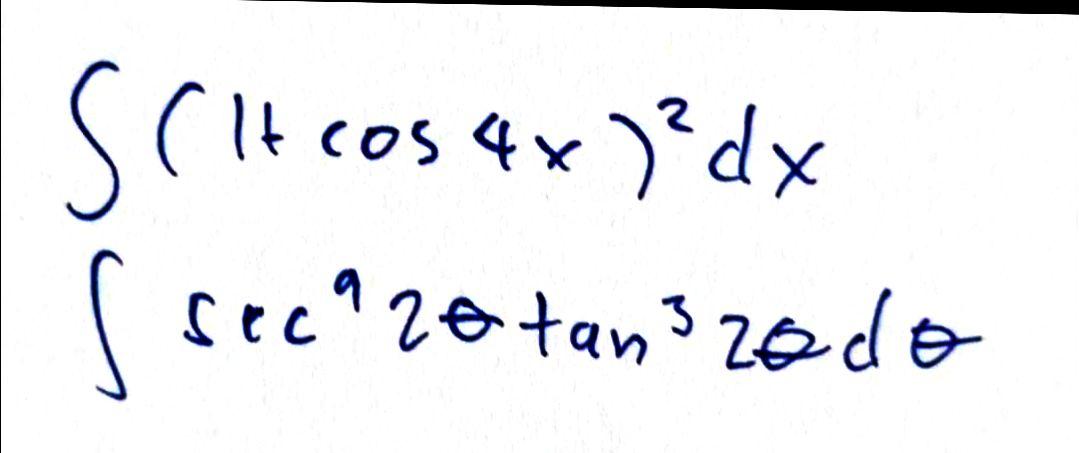 ∫(1+cos 4x)² dx
∫ sec⁹ 2θ tan³ 2θ dθ